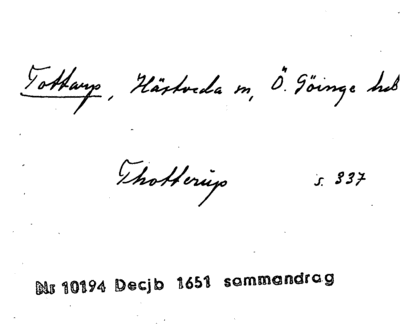 Tottarp, Hästveda sn, Ö. Göinge hd
Thotterup s. 337
Nr 10194 Decjb 1651 sammandrag